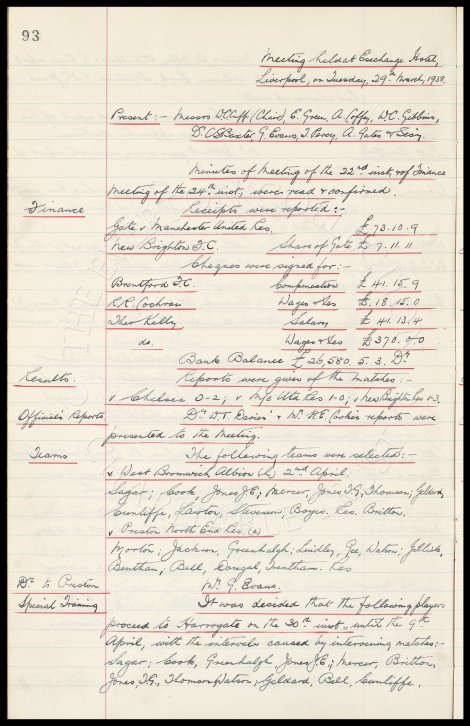 93
Meeting held at Exchange Hotel,
Liverpool, on Tuesday, 29th March, 1938.
Present :- Messrs W.C. Cuff (Chair), E. Green, A. Coffey, W.C. Gibbins,
Dr C.S. Baxter, G. Evans, J. Percy, A. Gates & Secy.
Minutes of Meeting of the 22nd inst, & of Finance
Meeting of the 24th inst, were read & confirmed
Finance
Receipts were reported :-
Gate, v Manchester United Res. £ 73. 10. 9
New Brighton F.C. Share of Gate £ 7. 11. 11
Cheques were signed for :-
Brentford F.C. Compensation £ 41. 15. 9
R.R. Cochran Wages & Exs £. 18. 15. 0
Theo Kelly Salary £ 41. 13. 4
do. Wages & Exs £370. 0. 0
Bank Balance £26,580. 5. 3. Dr
Results.
Reports were given of the matches :-
v Chelsea 0-2; v M/c Utd Res 1-0; v New Brighton Res 1-3.
Officials Reports.
Dr W.T. Davies' & Mr H.E. Cooke's reports were
presented to the Meeting.
Teams
The following teams were selected :-
v West Bromwich Albion (h) 2nd April.
Sagar; Cook, Jones J.E; Mercer, Jones T.G, Thomson; Geldard,
Cunliffe, Lawton, Stevenson, Boyes. Res. Britton.
v Preston North End Res. (a)
Morton; Jackson, Greenhalgh; Lindley, Gee, Watson; Gillick,
Bentham, Bell, Dougal, Trentham. Res
Dr to Preston
Mr G. Evans.
Special Training
It was decided that the following players
proceed to Harrogate on the 30th inst., until the 9th
April, with the intervals caused by intervening matches:-
Sagar; Cook, Greenhalgh, Jones J.E.; Mercer, Britton,
Jones, T.G., Thomson, Watson; Geldard, Bell, Cunliffe,